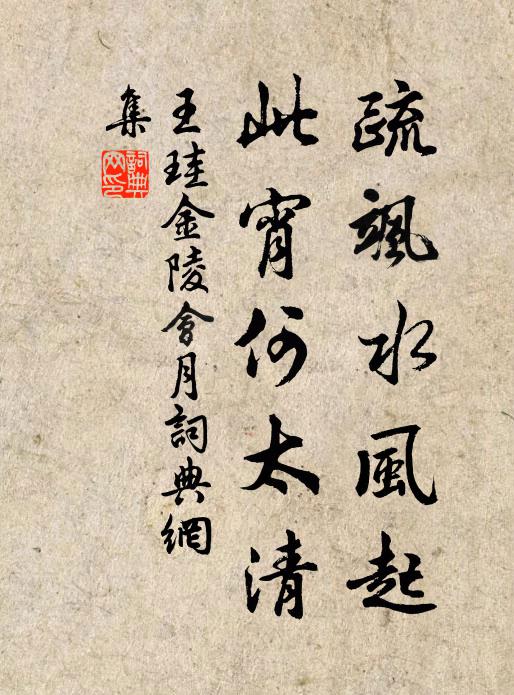 疏颯水風起
此宵何太清
王珪金陵會月詞典網
集
詞典
网印